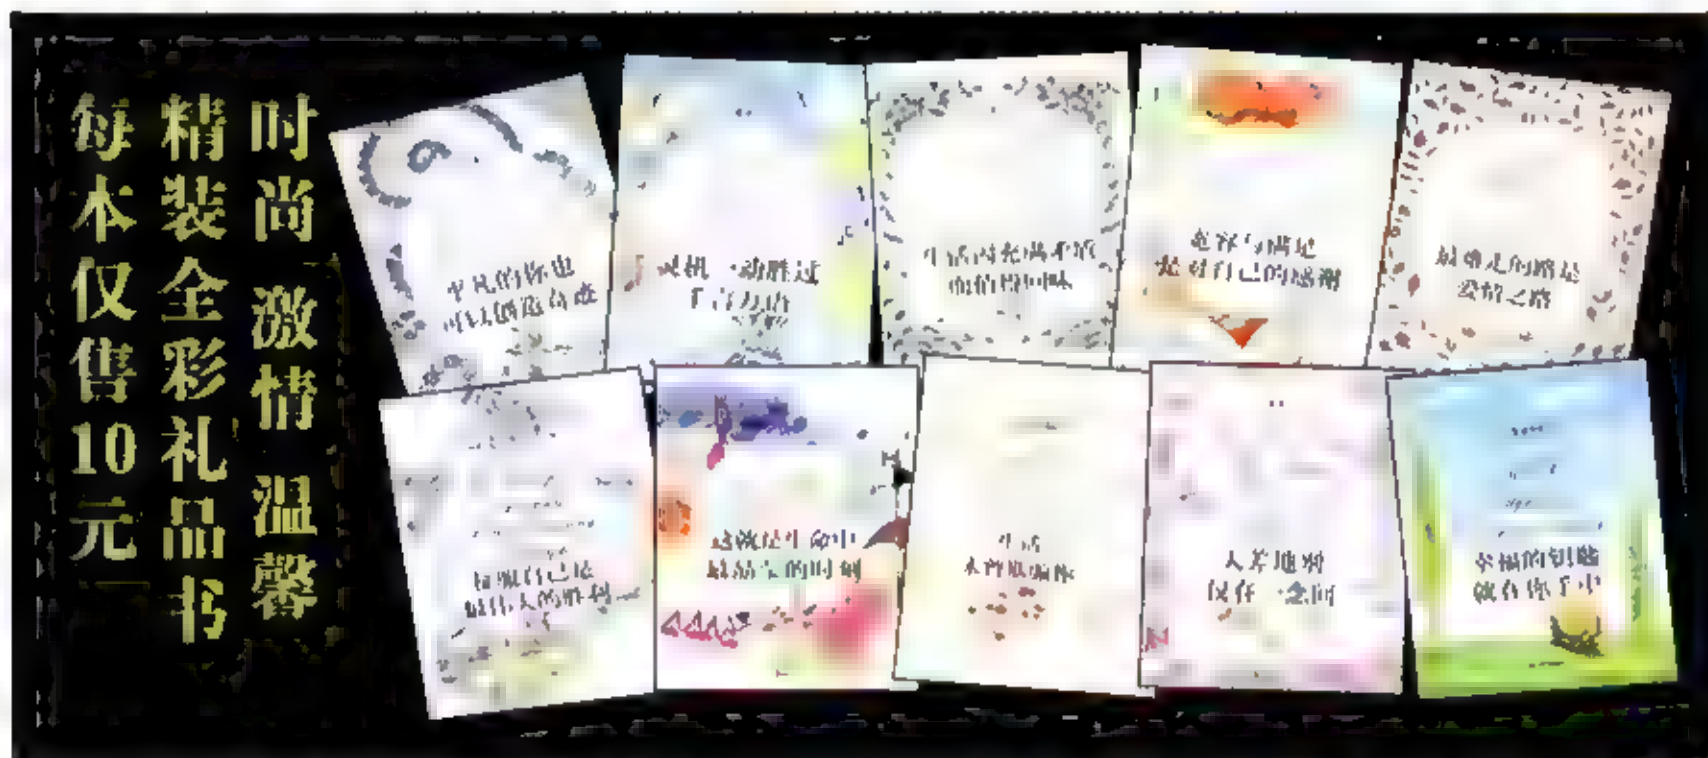 时尚 激情 温馨
精装全彩礼品书
每本仅售10元
平凡的你也
可以创造奇迹
灵机一动胜过
千言万语
生活因充满矛盾
而值得回味
宽容与满足
是对自己的感谢
最难走的路是
爱情之路
征服自己是
最伟大的胜利
这就是生命中
最品尝的时刻
生活
未曾欺骗你
天差地别
仅在一念间
幸福的钥匙
就在你手中